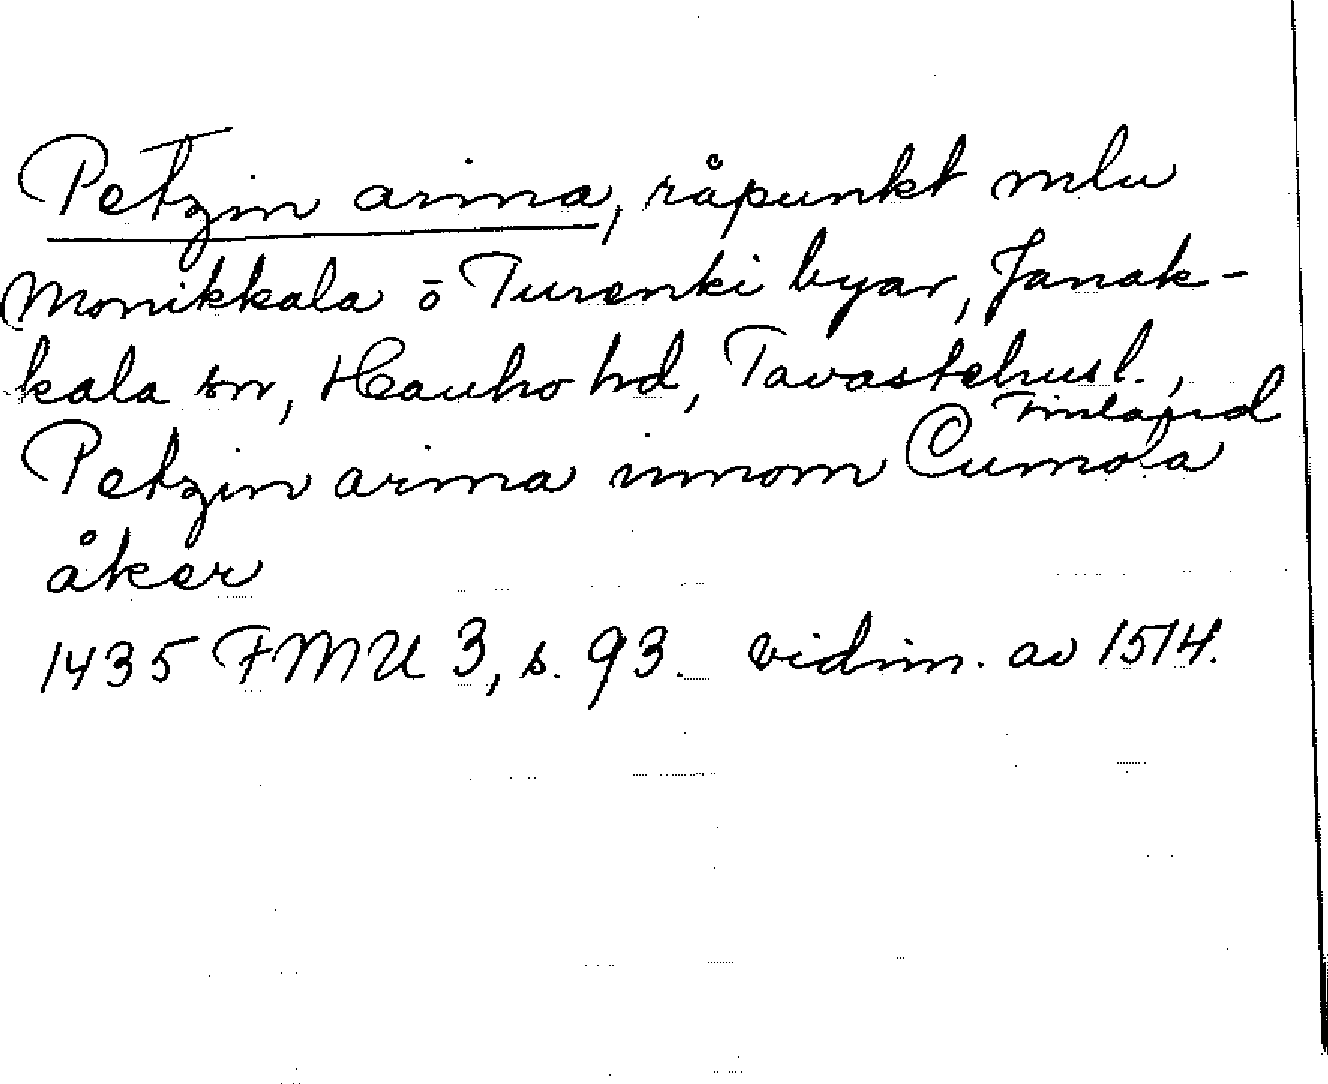 Petzin arina, råpunkt mlu
Monikkala ō Turenki byar, Janak-
kala sn, Hauho hd, Tavastehusl.,
Finland
Petzin arina innom Cumola
åker
1435 FMU 3, s. 93. vidim. av 1514.